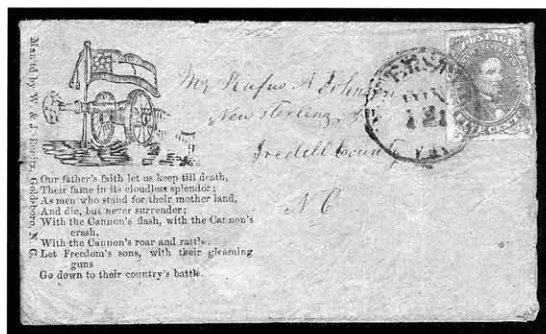 Man'fd by W. & J. Goldsboro, N. C.
Our father's faith let us keep till death,
Their fame in its cloudless splendor;
As men who stand for their mother land,
And die, but never surrender;
With the Cannon's flash, with the Cannon's
crash,
With the Cannon's roar and rattle.
Let Freedom's sons, with their gleaming
guns
Go down to their country's battle.
Rufus A Johnson
New sterling
Iredell County
N C
POSTAGE
CENTS